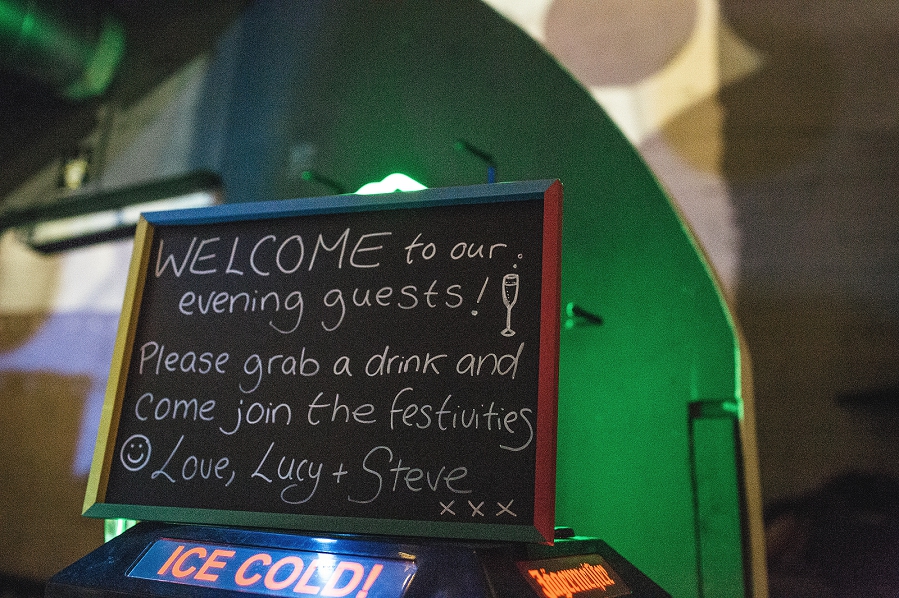 WELCOME to our
evening guests!
Please grab a drink and
come join the festivities
Love, Lucy + Steve
x x x
ICE COLD!
Jägermeister